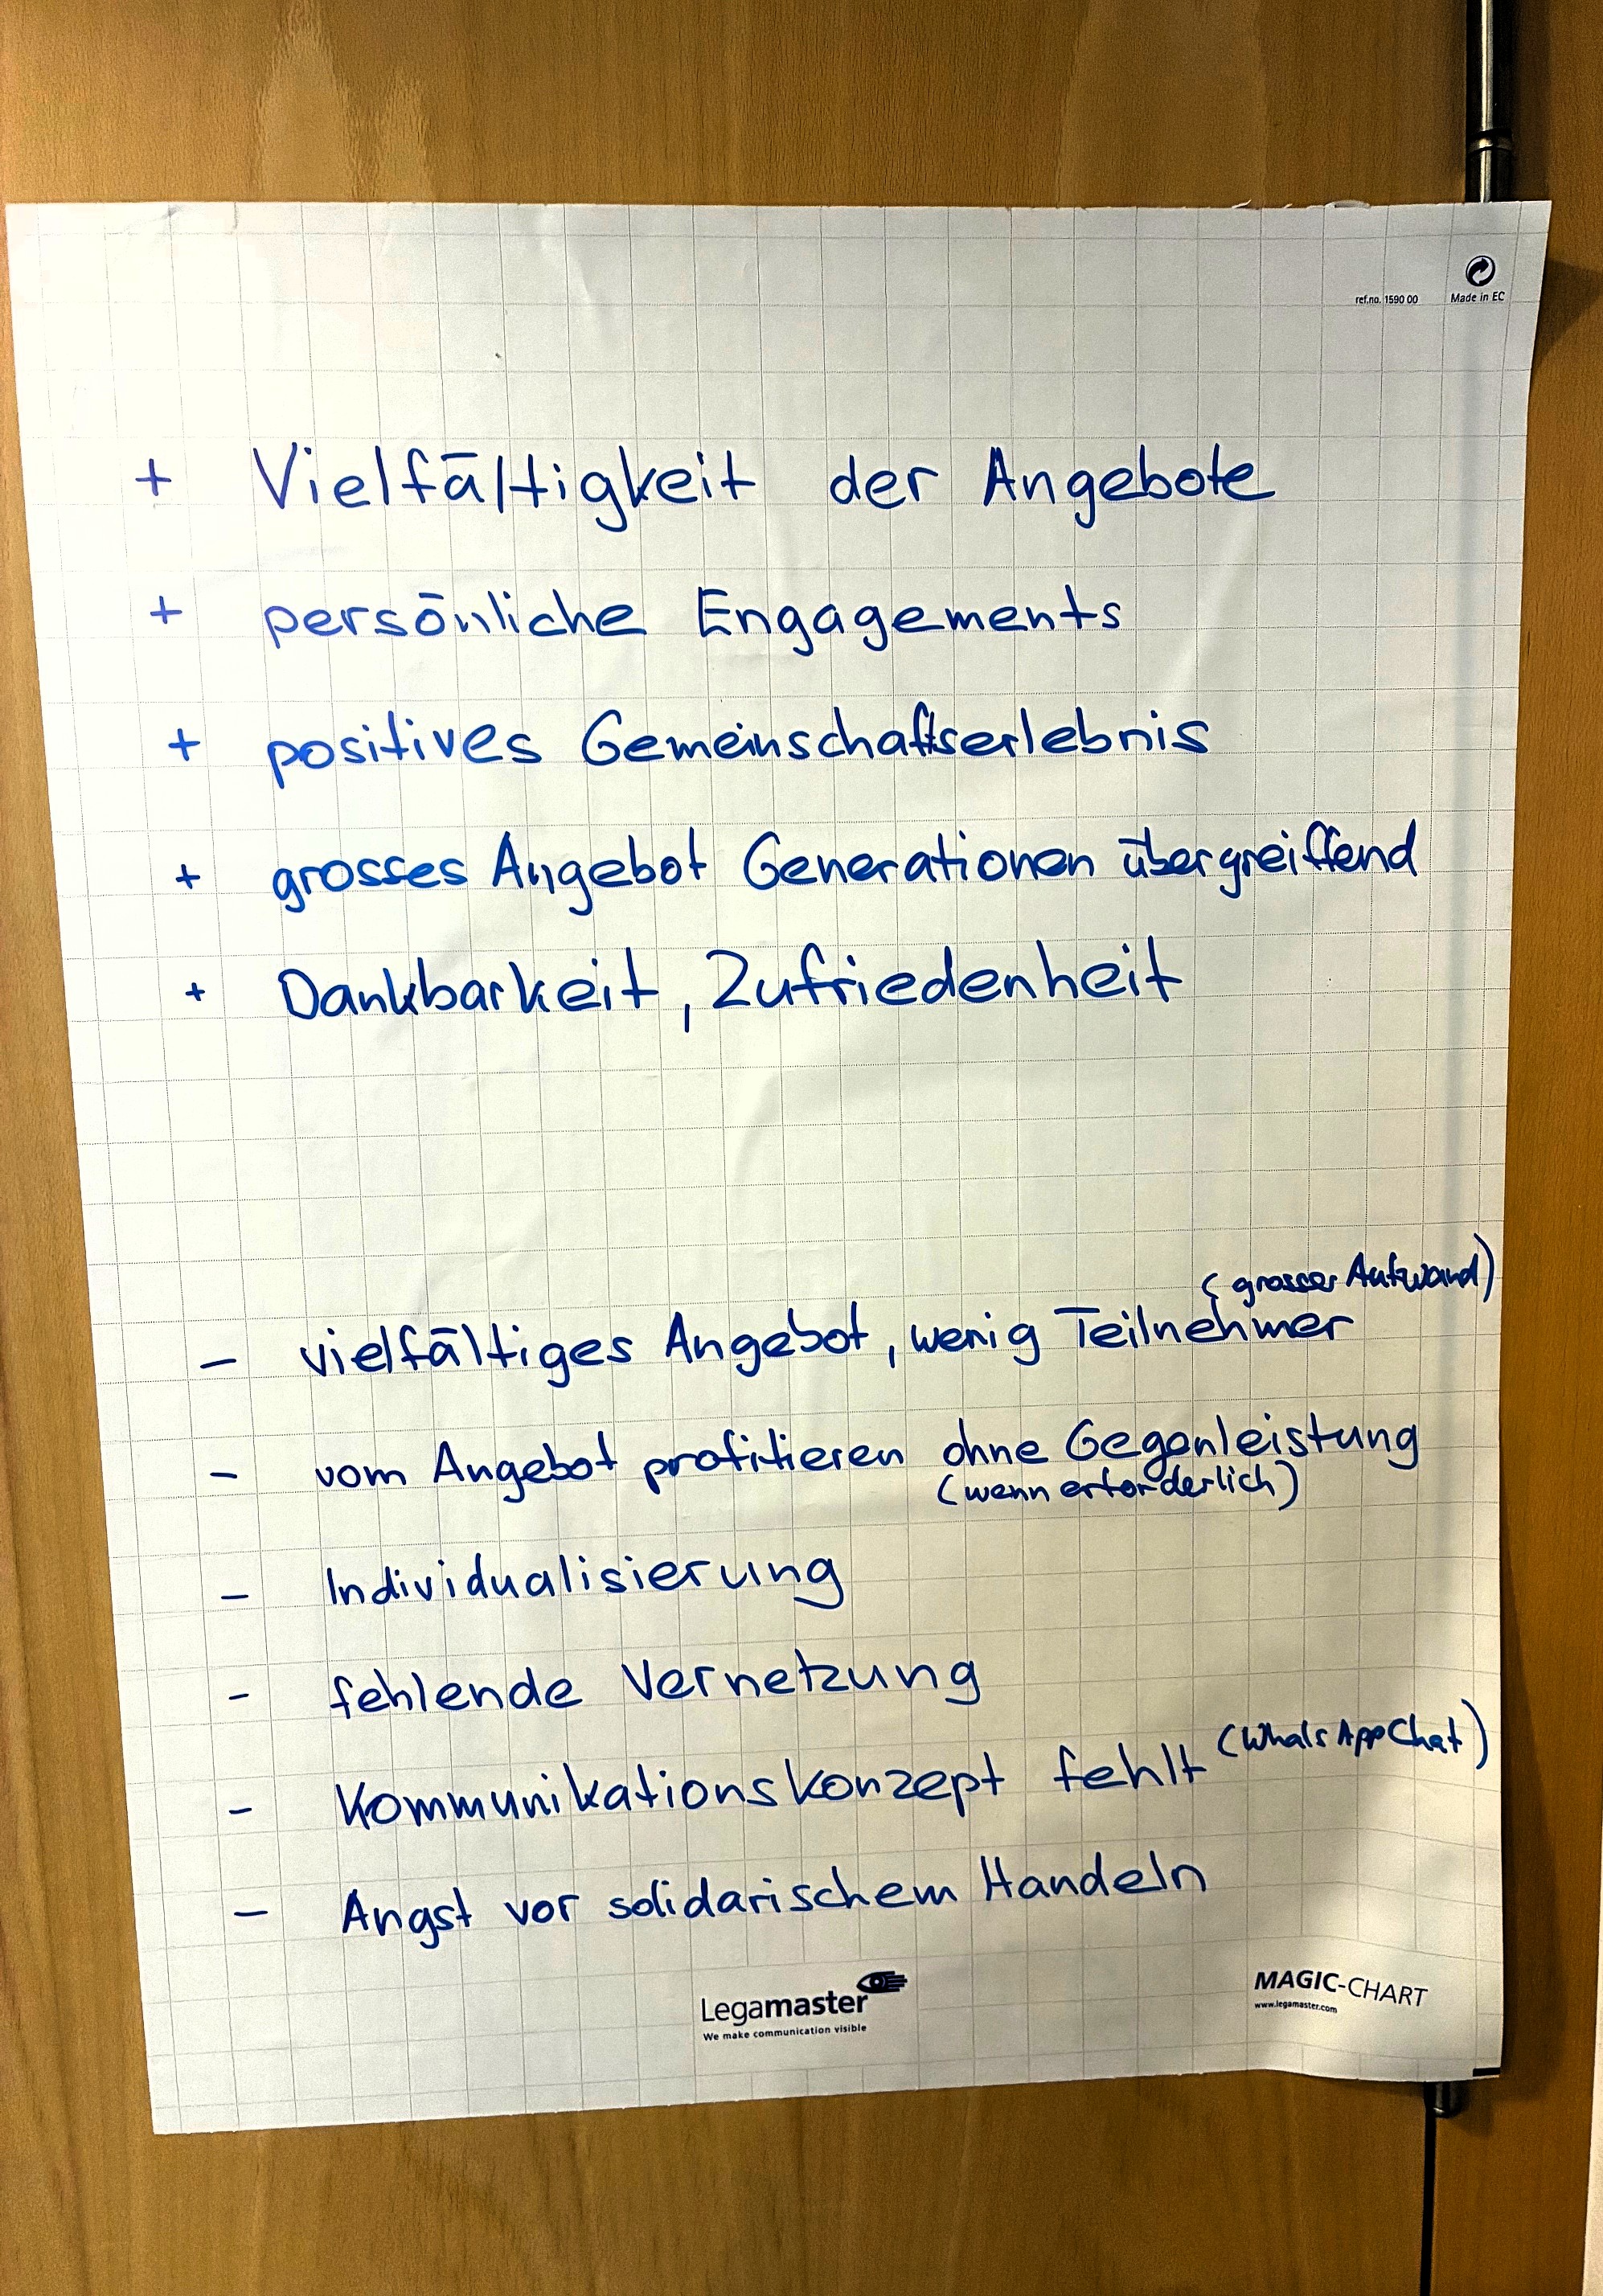 ref.no. 1590 00 Made in EC
+ Vielfältigkeit der Angebote
+ persönliche Engagements
+ positives Gemeinschaftserlebnis
+ grosses Angebot Generationen übergreiffend
+ Dankbarkeit, Zufriedenheit
(grosser Aufwand)
– vielfältiges Angebot, wenig Teilnehmer
– vom Angebot profitieren ohne Gegenleistung
(wenn erforderlich)
– Individualisierung
- fehlende Vernetzung
- Kommunikationskonzept fehlt (WhatsAppChat)
– Angst vor solidarischem Handeln
Legamaster
We make communication visible
MAGIC-CHART
www.legamaster.com